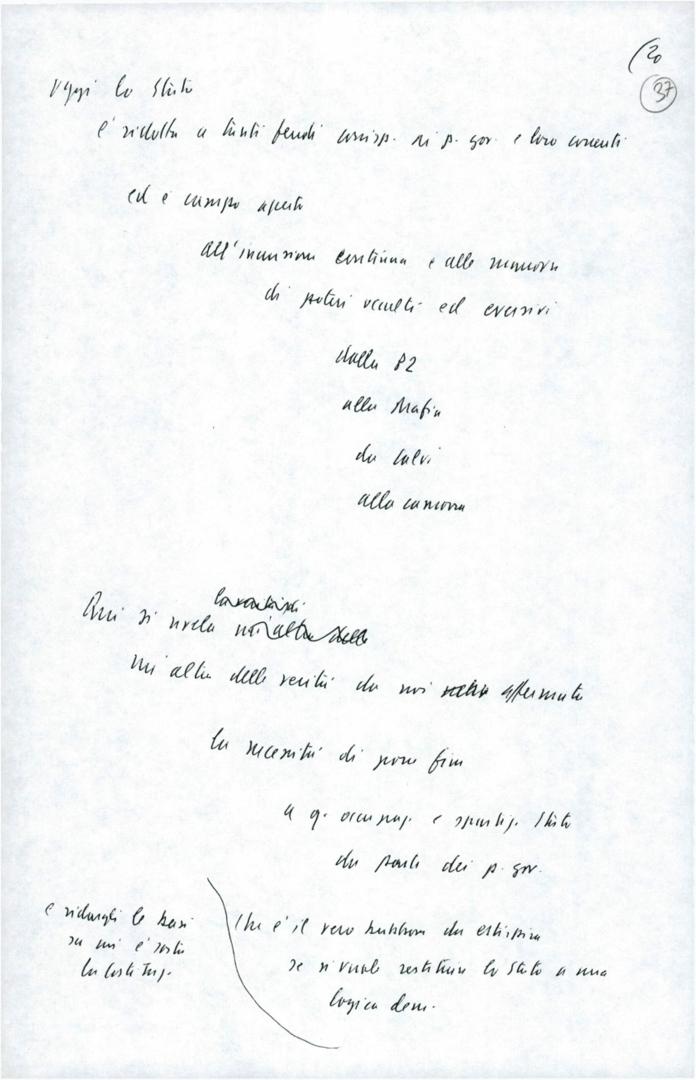 (20
37
Oggi lo Stato
è ridotto a tanti feudi corrisp. ai p. gov. e loro correnti
ed è campo aperto
all'incursione continua e alle manovre
di poteri occulti ed eversivi
dalla P2
alla Mafia
da Calvi
alla camorra
Qui si rivela
un'altra delle verità da noi affermate
la necessità di porre fine
a q. occupaz. e spartiz. Stato
da parte dei p. gov.
che è il vero bubbone da estirpare
se si vuole restituire lo Stato a una
logica dem.
e ridargli le basi
su cui è sorto
la Costituz.